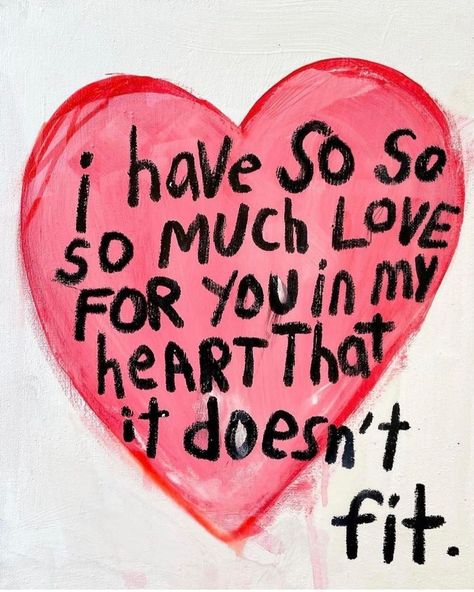 i have SO SO
SO MUCh LOVE
FOR YOU in my
heART That
it doesn't
fit.